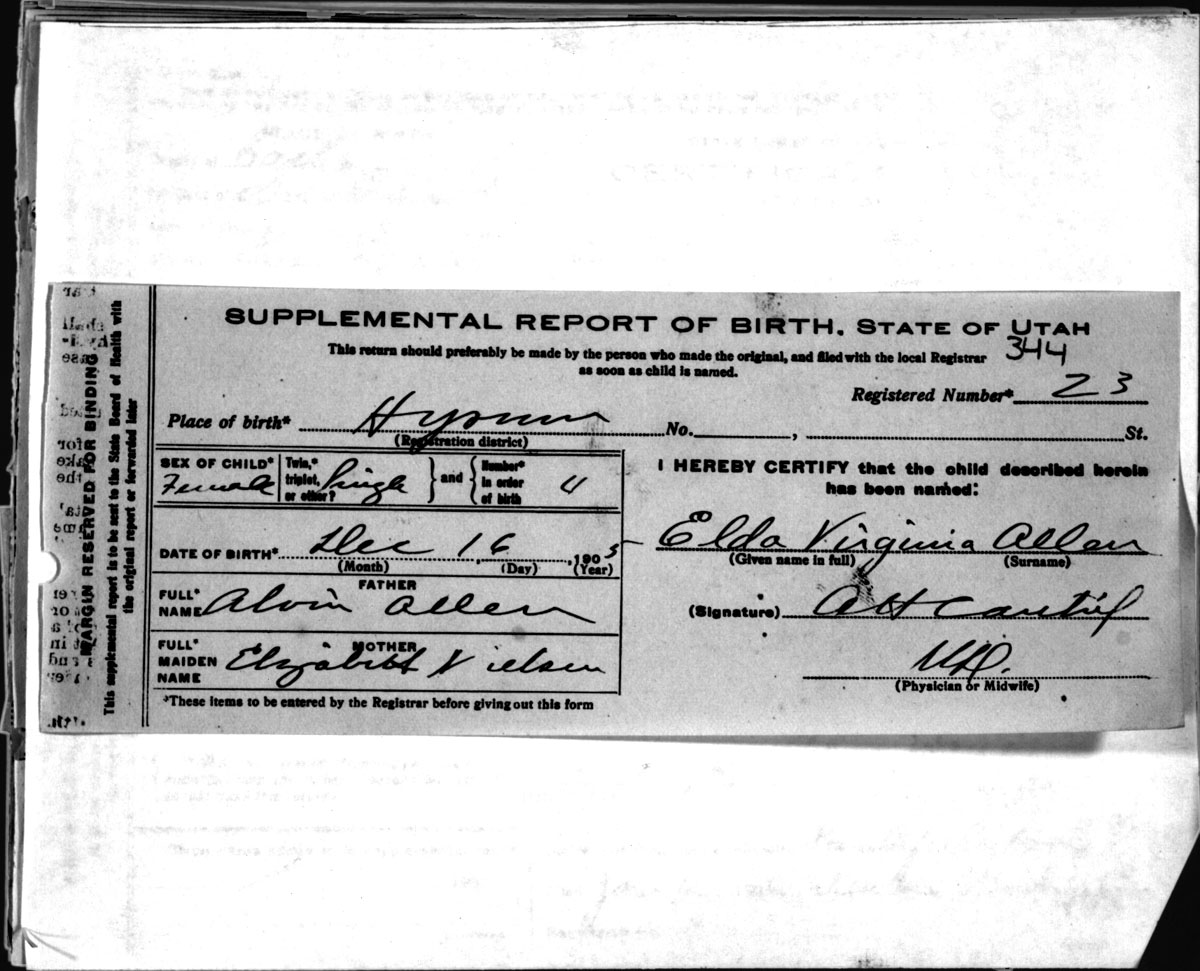 SUPPLEMENTAL REPORT OF BIRTH. STATE OF UTAH
This return should preferably be made by the person who made the original, and filed with the local Registrar
as soon as child is named.
344
Registered Number* 23
Place of birth* Hyrum No. , St.
(Registration district)
SEX OF CHILD* Female
Twin,* triplet, or other? Single } and { Number* in order of birth 4
DATE OF BIRTH* Dec 16, 1905
(Month) (Day) (Year)
FATHER
FULL* NAME Alvin Allen
MOTHER
FULL* MAIDEN NAME Elizabeth Nielsen
*These items to be entered by the Registrar before giving out this form
I HEREBY CERTIFY that the child described herein
has been named:
Elda Virginia Allen
(Given name in full) (Surname)
(Signature)
MD.
(Physician or Midwife)
MARGIN RESERVED FOR BINDING
This supplemental report is to be sent to the State Board of Health with
the original report or forwarded later